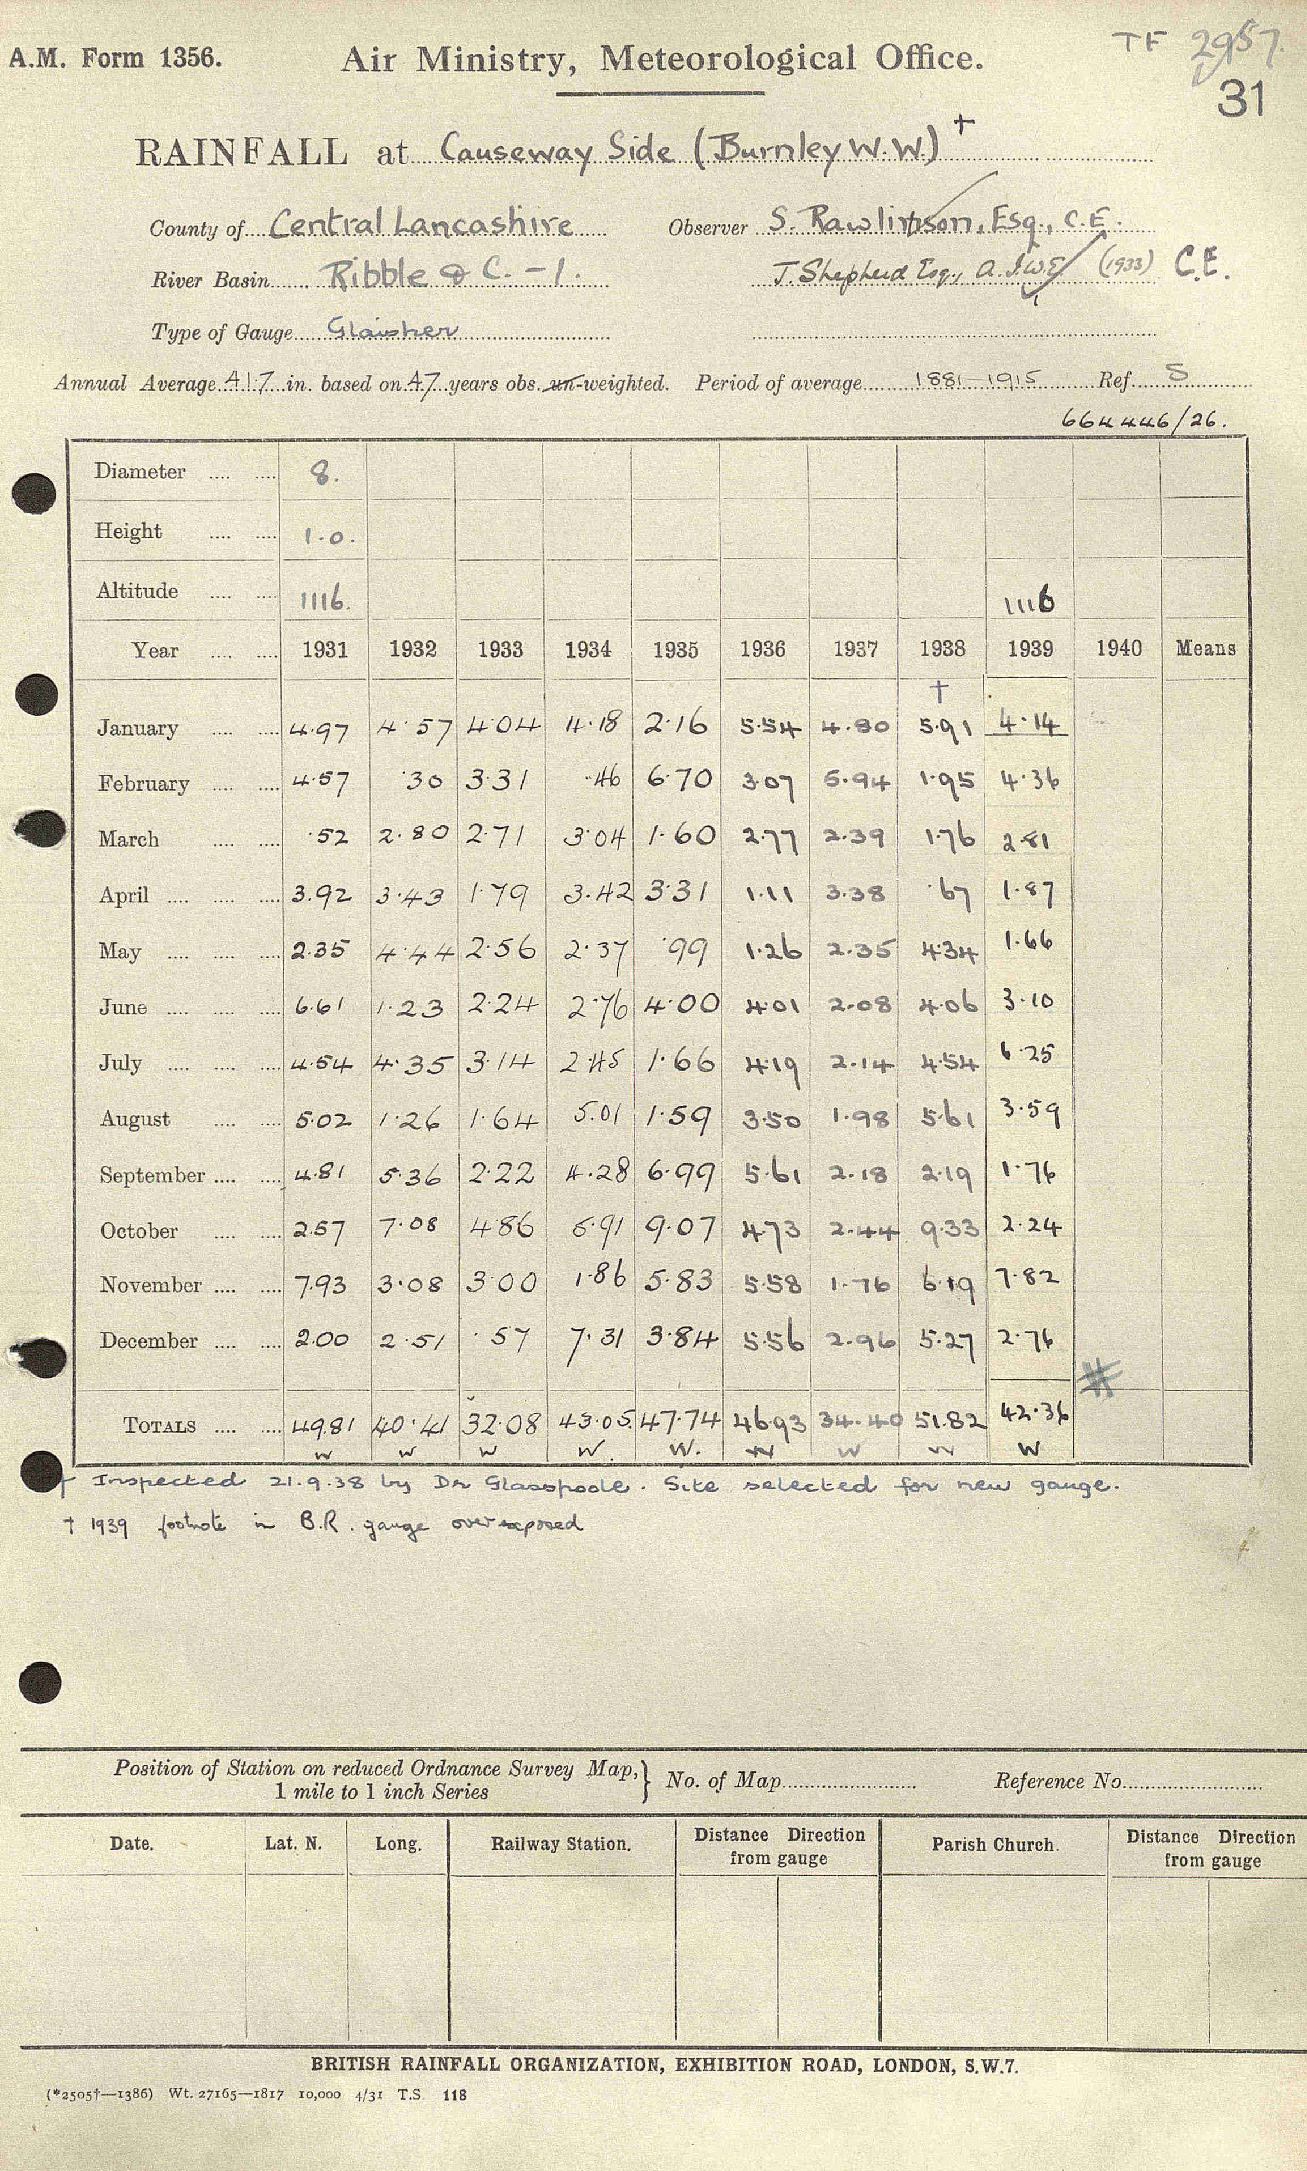 TF 2957.
A.M. Form 1356. Air Ministry, Meteorological Office.
31
RAINFALL at Causeway Side (Burnley W.W.) †
County of Central Lancashire Observer S. Rawlinson, Esq., C.E.
River Basin Ribble & C. - 1. J. Shepherd Esq., A.I.W.E (1933) C.E.
Type of Gauge Glaisher
Annual Average 41.7 in. based on 47 years obs. un-weighted. Period of average 1881-1915 Ref. S
664446/26.
Diameter 8.
Height 1.0.
Altitude 1116. 1116
Year 1931 1932 1933 1934 1935 1936 1937 1938 1939 1940 Means
†
January 4.97 4.57 4.04 4.18 2.16 5.54 4.80 5.91 4.14
February 4.57 .30 3.31 .46 6.70 3.07 5.94 1.95 4.36
March .52 2.80 2.71 3.04 1.60 2.77 2.39 1.76 2.81
April 3.92 3.43 1.79 3.42 3.31 1.11 3.38 .67 1.87
May 2.35 4.44 2.56 2.37 .99 1.26 2.35 4.34 1.66
June 6.61 1.23 2.24 2.76 4.00 4.01 2.08 4.06 3.10
July 4.54 4.35 3.14 2.45 1.66 4.19 2.14 4.54 6.25
August 5.02 1.26 1.64 5.01 1.59 3.50 1.98 5.61 3.59
September 4.81 5.36 2.22 4.28 6.99 5.61 2.18 2.19 1.76
October 2.57 7.08 4.86 5.91 9.07 4.73 2.44 9.33 2.24
November 7.93 3.08 3.00 1.86 5.83 5.58 1.76 6.19 7.82
December 2.00 2.51 .57 7.31 3.84 5.56 2.96 5.27 2.76
#
TOTALS 49.81 40.41 32.08 43.05 47.74 46.93 34.40 51.82 42.36
w w w w. w. w w w w
† Inspected 21.9.38 by Dr Glasspoole. Site selected for new gauge.
† 1939 footnote in B.R. gauge over exposed
Position of Station on reduced Ordnance Survey Map, } No. of Map Reference No.
1 mile to 1 inch Series
Date. Lat. N. Long. Railway Station. Distance Direction from gauge Parish Church. Distance Direction from gauge
BRITISH RAINFALL ORGANIZATION, EXHIBITION ROAD, LONDON, S.W.7.
(*2505†—1386) Wt. 27165—1817 10,000 4/31 T.S. 118